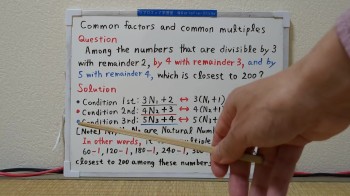 Common factors and common multiples
Question
Among the numbers that are divisible by 3
with remainder 2, by 4 with remainder 3, and by
5 with remainder 4, which is closest to 200?
Solution
• Condition 1st: 3N₁+2 ↔ 3(N₁+1)
• Condition 2nd: 4N₂+3 ↔ 4(N₂+1
• Condition 3rd: 5N₃+4 ↔ 5(N₃
[Note] N₁, N₃ are Natural Num
In other words, it
60-1, 120-1, 180-1, 240-1, 300
closest to 200 among these number